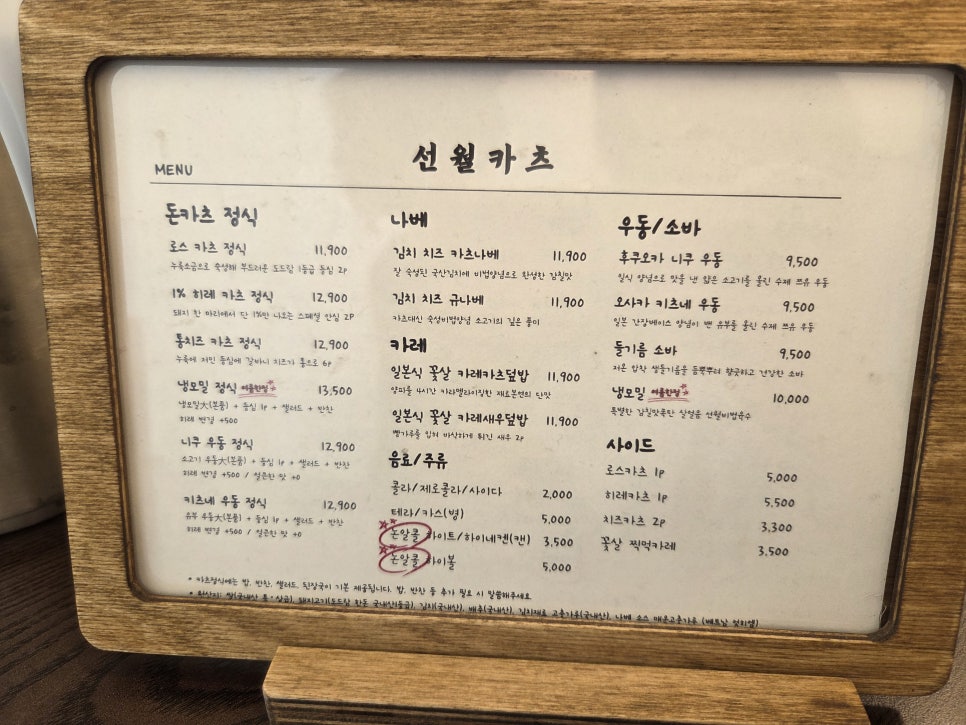 선월카츠
MENU
돈카츠 정식
로스 카츠 정식 11,900
누룩소금으로 숙성해 부드러운 도드람 1등급 등심 2p
1% 히레 카츠 정식 12,900
돼지 한 마리에서 단 1%만 나오는 스페셜 안심 2P
통치즈 카츠 정식 12,900
누룩에 저민 등심에 갈바니 치즈가 통으로 6p
냉모밀 정식 여름한정 13,500
냉모밀大(본품) + 등심 1p + 샐러드 + 반찬
히레 변경 +500
니쿠 우동 정식 12,900
소고기 우동大(본품) + 등심 1p + 샐러드 + 반찬
히레 변경 +500 / 얼큰한 맛 +0
키츠네 우동 정식 12,900
유부 우동大(본품) + 등심 1p + 샐러드 + 반찬
히레 변경 +500 / 얼큰한 맛 +0
나베
김치 치즈 카츠나베 11,900
잘 숙성된 국산김치에 비법양념으로 완성한 감칠맛
김치 치즈 규나베 11,900
카츠대신 숙성비법양념 소고기의 깊은 풍미
카레
일본식 꽃살 카레카츠덮밥 11,900
양파를 4시간 카라멜라이징한 재료본연의 단맛
일본식 꽃살 카레새우덮밥 11,900
빵가루를 입혀 바삭하게 튀긴 새우 2p
음료/주류
콜라/제로콜라/사이다 2,000
테라/카스(병) 5,000
논알콜 하이트/하이네켄(캔) 3,500
논알콜 하이볼 5,000
우동/소바
후쿠오카 니쿠 우동 9,500
일식 양념으로 맛을 낸 얇은 소고기를 올린 수제 쯔유 우동
오사카 키츠네 우동 9,500
일본 간장베이스 양념이 밴 유부를 올린 수제 쯔유 우동
들기름 소바 9,500
저온 압착 생들기름을 듬뿍뿌려 향긋하고 건강한 소바
냉모밀 여름한정 10,000
특별한 감칠맛폭탄 살얼음 선월비법육수
사이드
로스카츠 1p 5,000
히레카츠 1p 5,500
치즈카츠 2p 3,300
꽃살 찍먹카레 3,500
* 카츠정식에는 밥, 반찬, 샐러드, 된장국이 기본 제공됩니다. 밥, 반찬 등 추가 필요 시 말씀해주세요
* 원산지: 쌀(국내산 특·상급), 돼지고기(도드람 한돈 국내산1등급), 김치(국내산), 배추(국내산), 김치재료 고춧가루(국내산), 나베 소스 매운고춧가루 (베트남